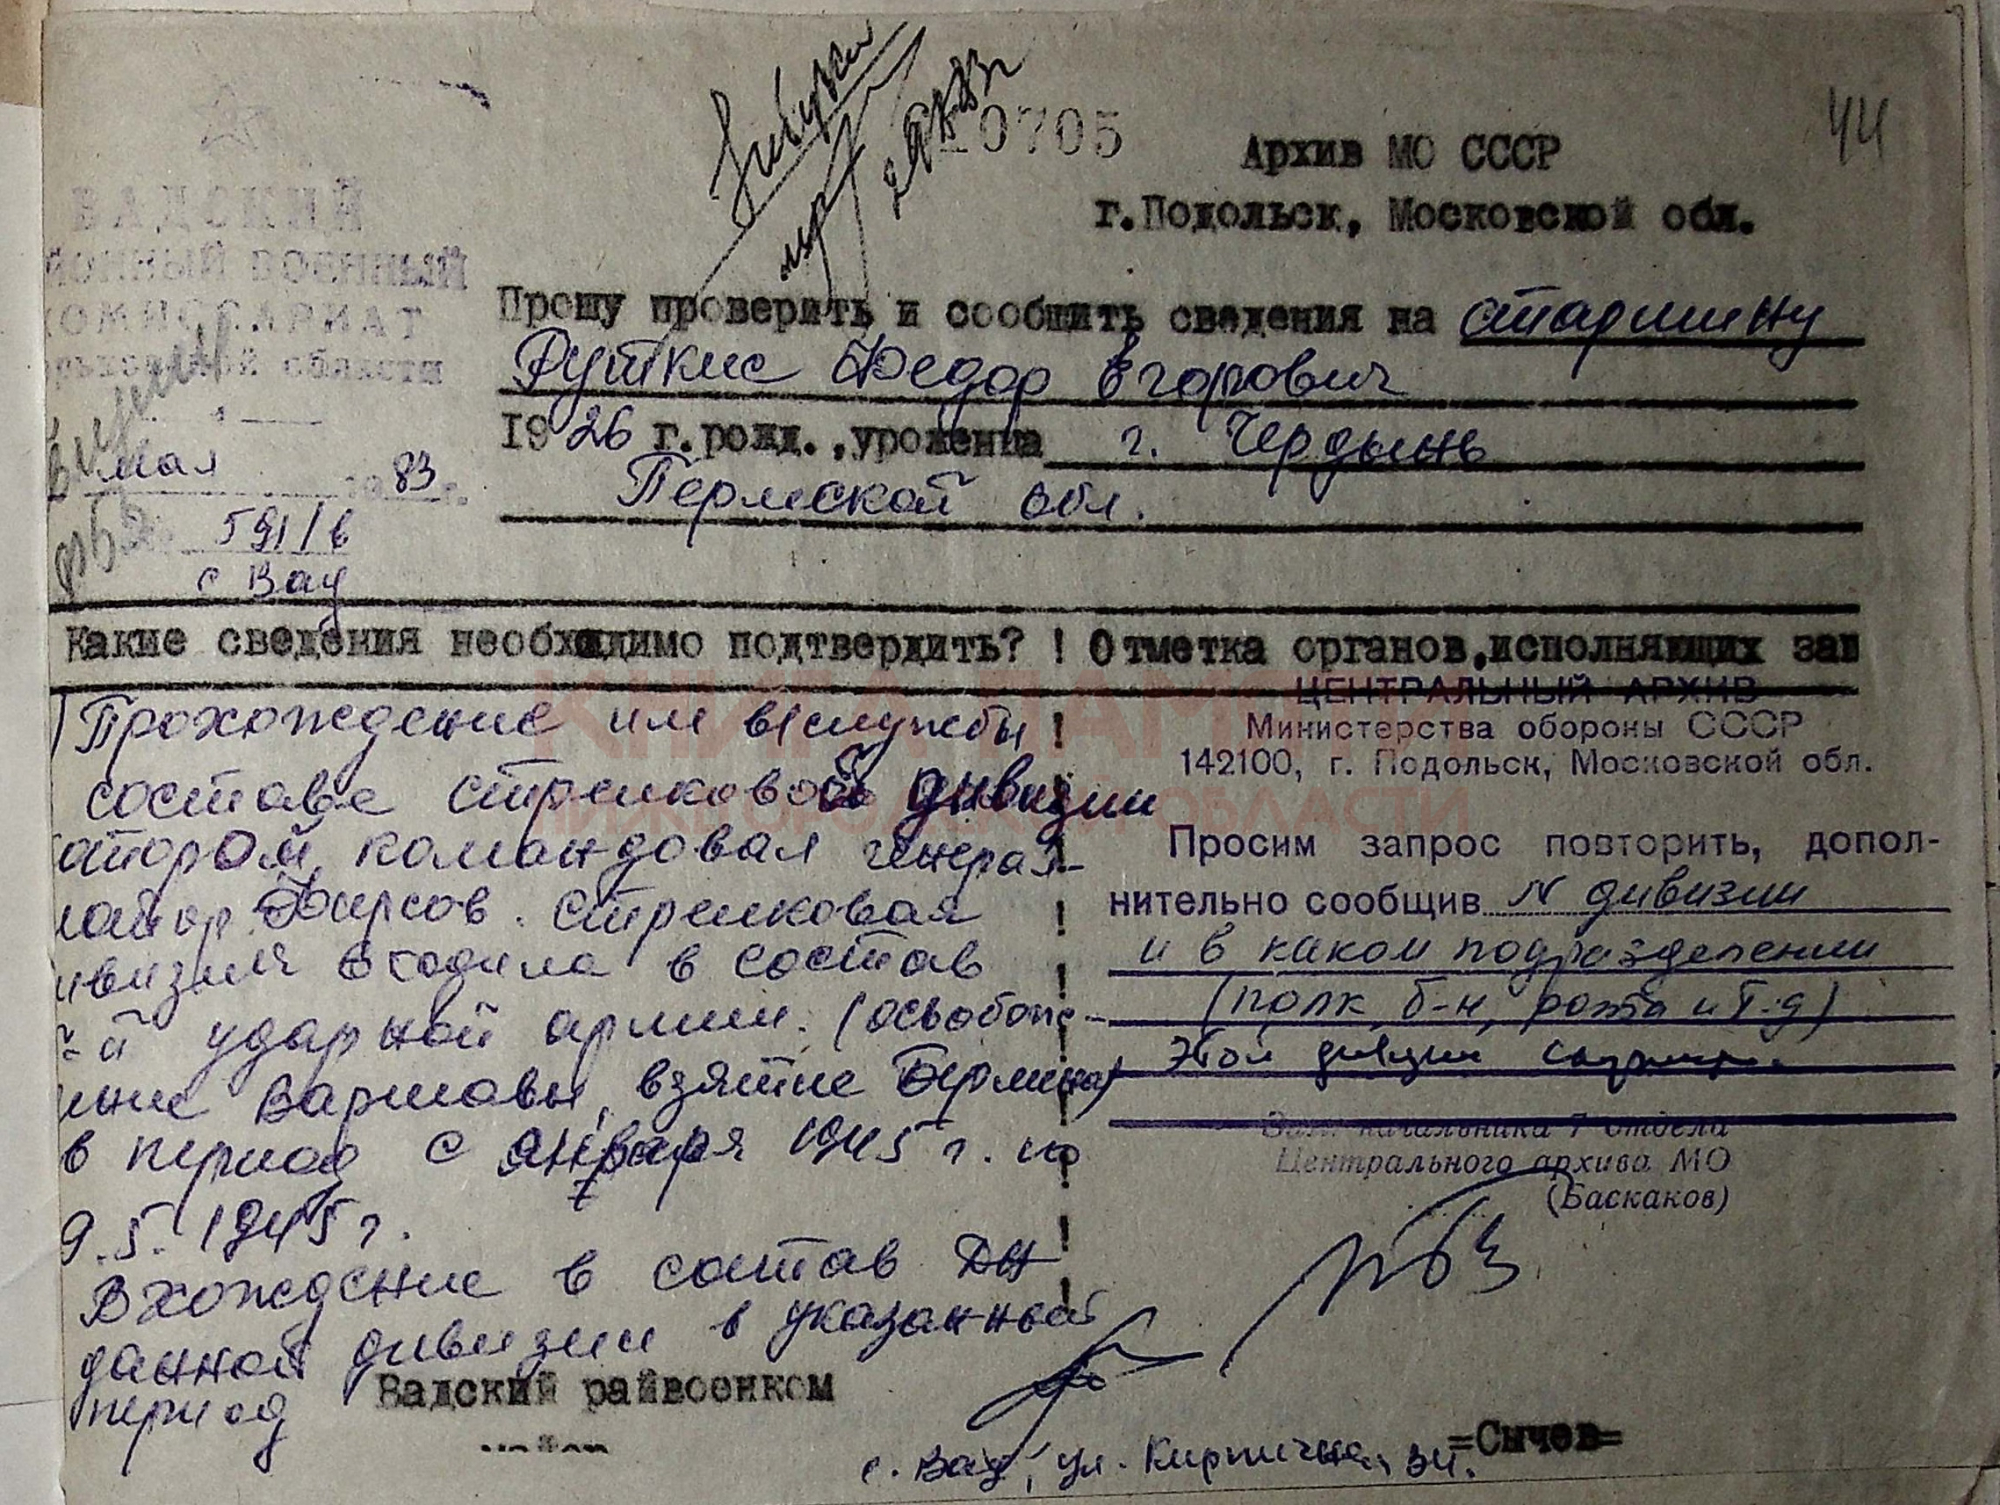 44
0705
Архив МО СССР
г.Подольск, Московской обл.
ВАДСКИЙ
ЙОННЫЙ ВОЕННЫЙ
КОМИССАРИАТ
области
мая 1983 г.
591/в
с Вад
Прошу проверить и сообщить сведения на старшину
Руткис Федор Егорович
1926 г.рожд.,уроженца г. Чердынь
Пермской обл.
Какие сведения необходимо подтвердить? ! Отметка органов,исполняющих зап
Прохождение им в/службы
составе стрелковой дивизии
оторой командовал генерал-
майор Фирсов. стрелковая
ивизия входила в состав
-й ударной армии. (освобожде-
ние Варшавы, взятие Берлина)
в период с января 1945 г. по
9.5.1945 г.
Вхождение в состав ДА
данной дивизии в указанный
период
ЦЕНТРАЛЬНЫЙ АРХИВ
Министерства обороны СССР
142100, г. Подольск, Московской обл.
Просим запрос повторить, допол-
нительно сообщив N дивизии
и в каком подразделении
(полк, б-н, рота и т.д)
этой дивизии
Зам. начальника 7 отдела
Центрального архива МО
(Баскаков)
Вадский райвоенком
майор
=Сычев=
с. Вад, ул. Кирпичная 34.
КНИГА ПАМЯТИ
НИЖЕГОРОДСКОЙ ОБЛАСТИ